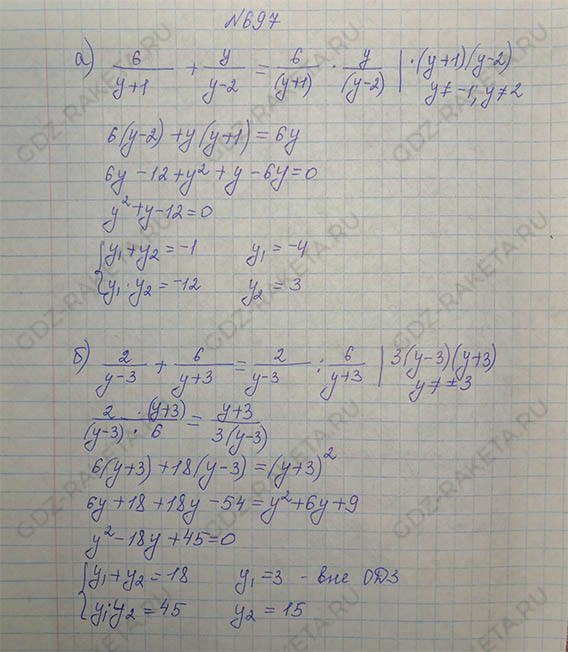 №697
а) 6/(y+1) + y/(y-2) = 6/(y+1) · y/(y-2) | ·(y+1)(y-2)
y≠-1, y≠2
6(y-2)+y(y+1)=6y
6y-12+y²+y-6y=0
y²+y-12=0
{y₁+y₂=-1 y₁=-4
{y₁·y₂=-12 y₂=3
б) 2/(y-3) + 6/(y+3) = 2/(y-3) : 6/(y+3) | 3(y-3)(y+3)
y≠±3
2·(y+3)/(y-3)·6 = (y+3)/3(y-3)
6(y+3)+18(y-3)=(y+3)²
6y+18+18y-54=y²+6y+9
y²-18y+45=0
{y₁+y₂=18 y₁=3 - вне ОДЗ
{y₁·y₂=45 y₂=15
GDZ-RAKETA.RU